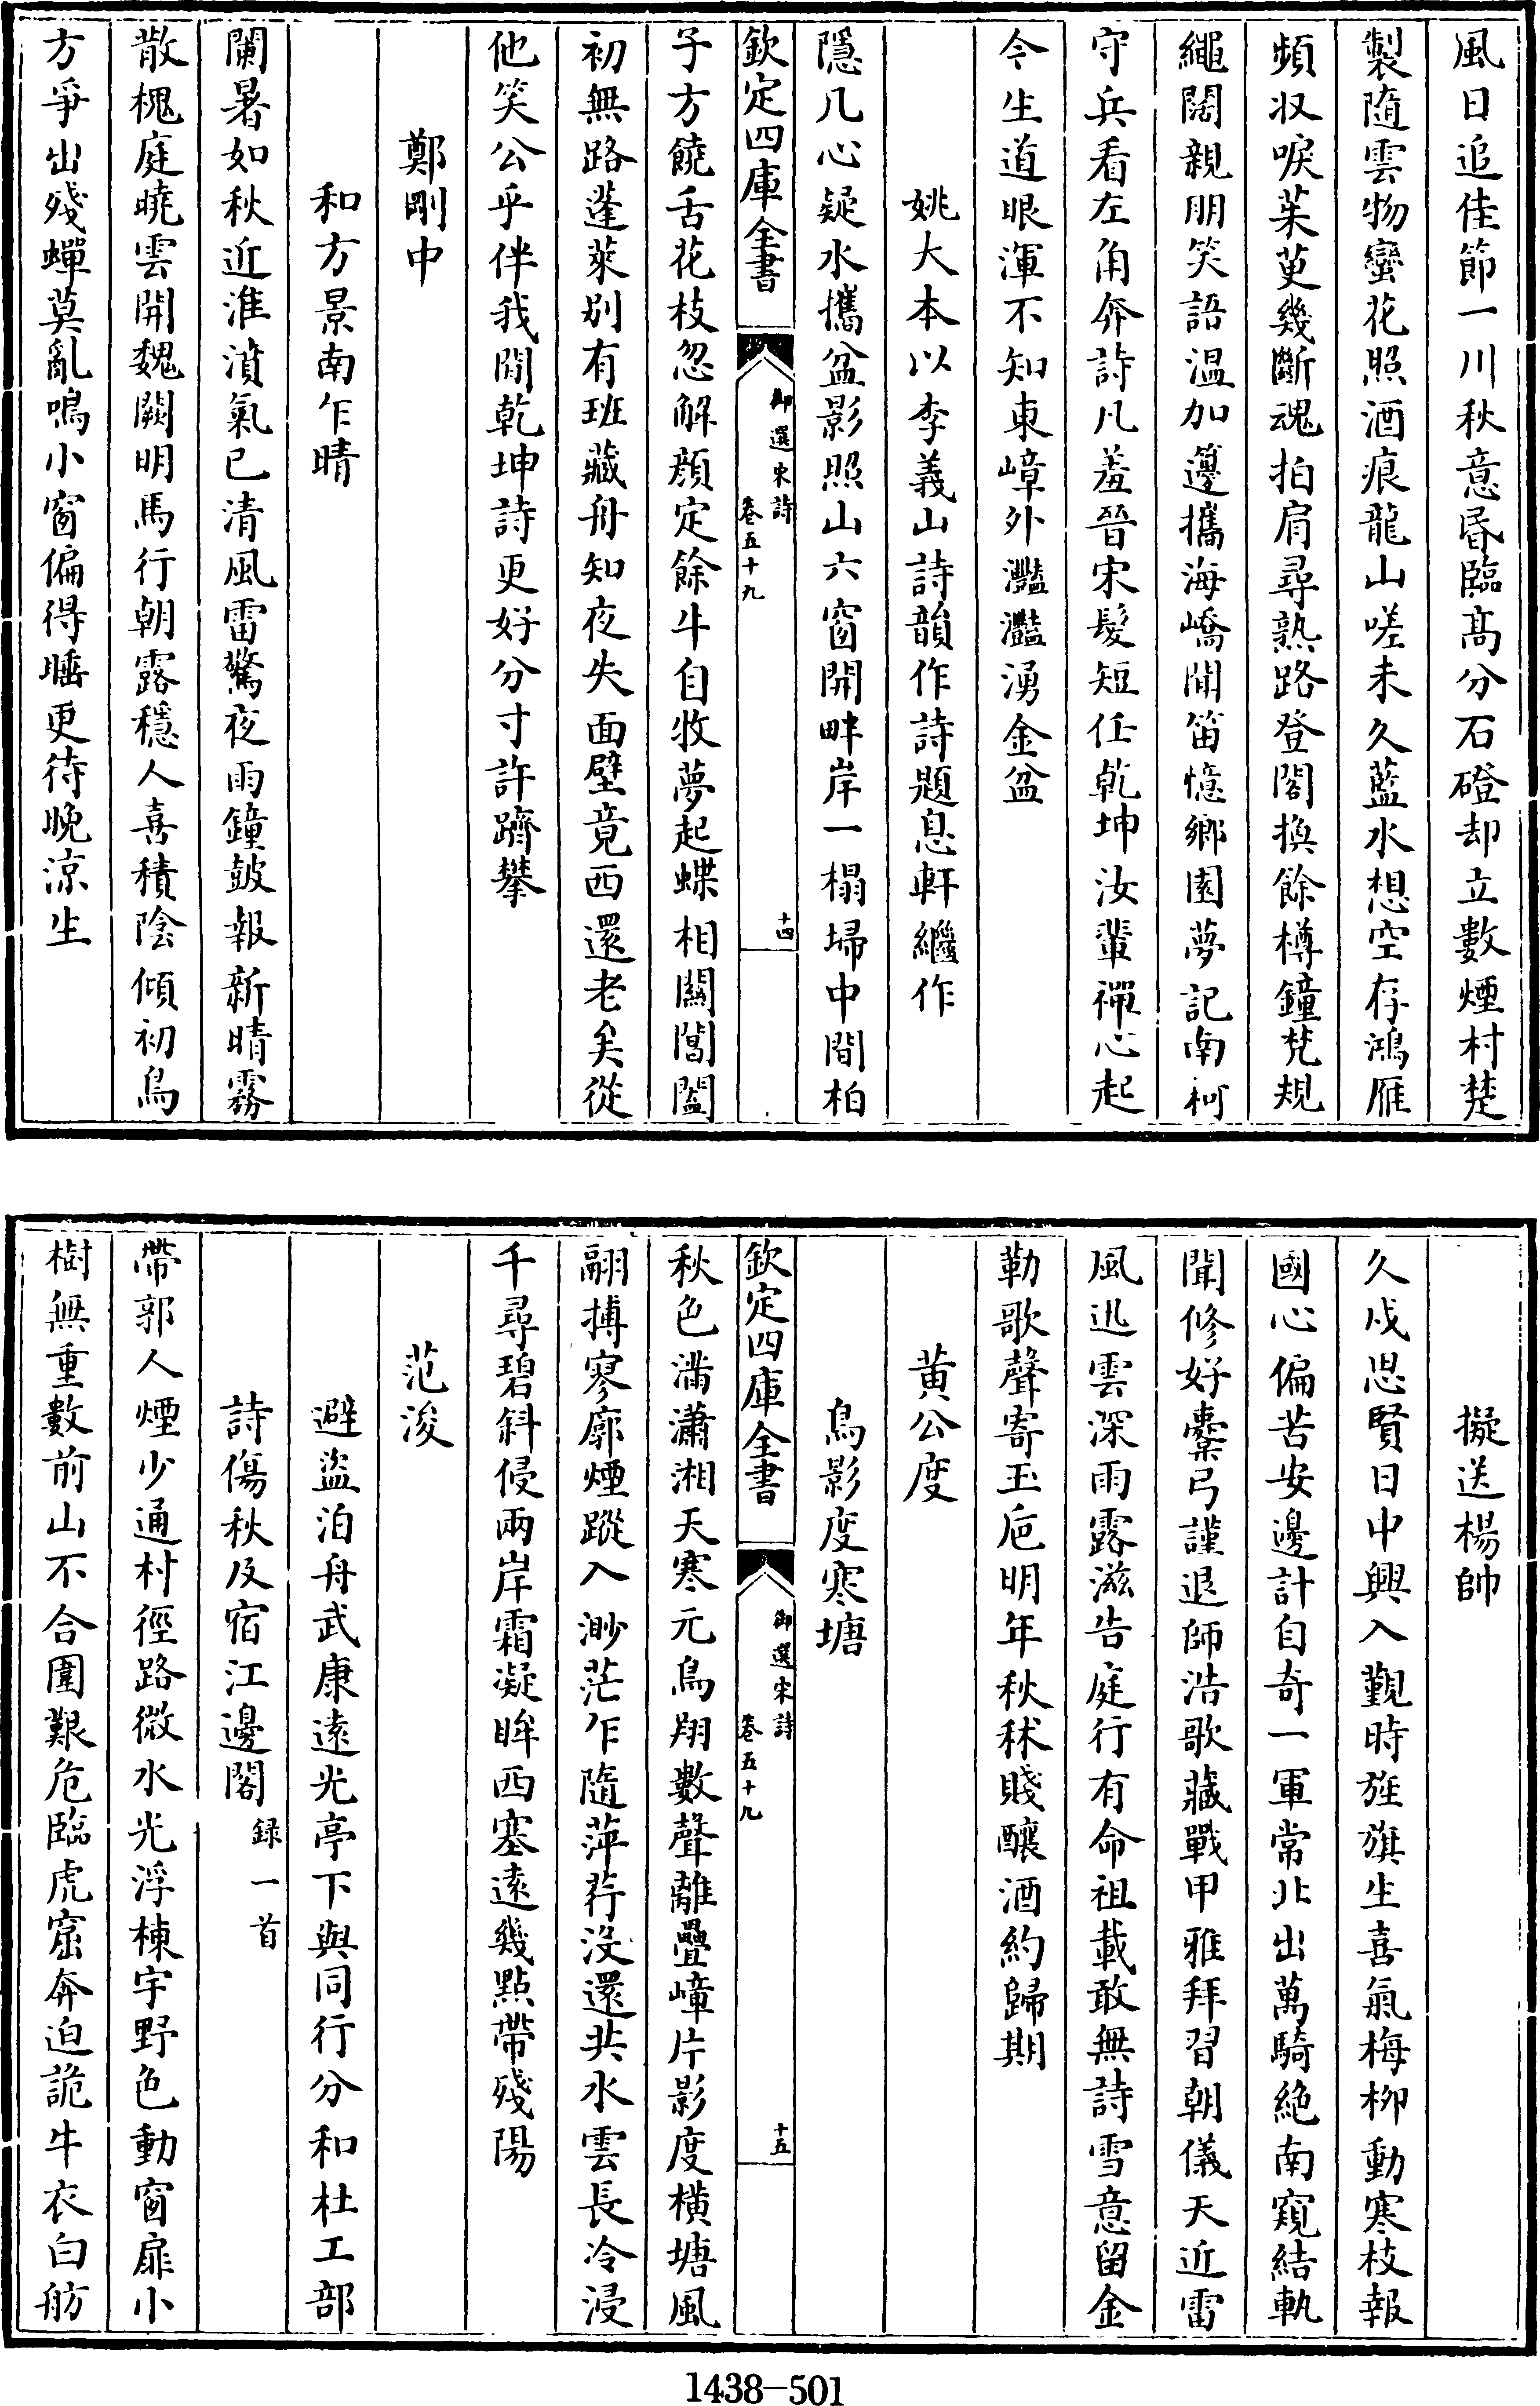 風日追佳節一川秋意昬臨髙分石磴却立數煙村楚
製隨雲物蠻花照酒痕龍山嗟未久藍水想空存鴻雁
頻収唳茱萸幾斷魂拍肩尋熟路登閣換餘樽鐘梵規
繩闊親朋笑語温加籩攜海嶠聞笛憶鄉園夢記南柯
守兵看左角奔詩凡羞晉宋髮短任乾坤汝輩禪心起
今生道眼渾不知東嶂外灧灧湧金盆
姚大本以李義山詩韻作詩題息軒繼作
隱几心疑水攜盆影照山六窗開畔岸一榻埽中間柏
欽定四庫全書
御選宋詩
卷五十九
十四
子方饒舌花枝忽解顔定餘牛自牧夢起蝶相關閶闔
初無路蓬萊别有班藏舟知夜失面壁竟西還老矣從
他笑公乎伴我閒乾坤詩更好分寸許躋攀
鄭剛中
和方景南乍晴
闌暑如秋近淮濆氣已清風雷驚夜雨鐘皷報新晴霧
散槐庭曉雲開魏闕明馬行朝露穩人喜積陰傾初鳥
方爭出殘蟬莫亂鳴小窗偏得睡更待晚涼生
擬送楊帥
久戍思賢日中興入覲時旌旗生喜氣梅桞動寒枝報
國心偏苦安邊計自奇一軍常北出萬騎絶南窺結軌
聞修好櫜弓謹退師浩歌藏戰甲雅拜習朝儀天近雷
風迅雲深雨露滋告庭行有命祖載敢無詩雪意留金
勒歌聲寄玉巵明年秋秫賤釀酒約歸期
黄公度
鳥影度寒塘
欽定四庫全書
御選宋詩
卷五十九
十五
秋色滿瀟湘天寒元鳥翔數聲離疊嶂片影度横塘風
翮摶寥廓煙蹤入渺茫乍隨萍荇沒還共水雲長冷浸
千尋碧斜侵兩岸霜凝眸西塞逺幾點帶殘陽
范浚
避盜泊舟武康逺光亭下與同行分和杜工部
詩傷秋及宿江邊閣録一首
帶郭人煙少通村徑路微水光浮棟宇野色動窗扉小
樹無重數前山不合圍艱危臨虎窟奔迫詭牛衣白舫
1438—501